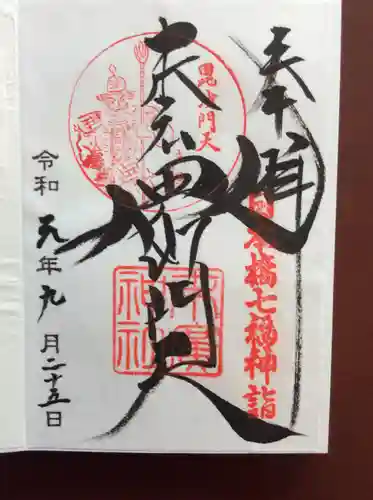 奉拝
日本橋七福神詣
毘沙門天
末廣
毘沙門天
末廣
神社
令和元年九月二十五日